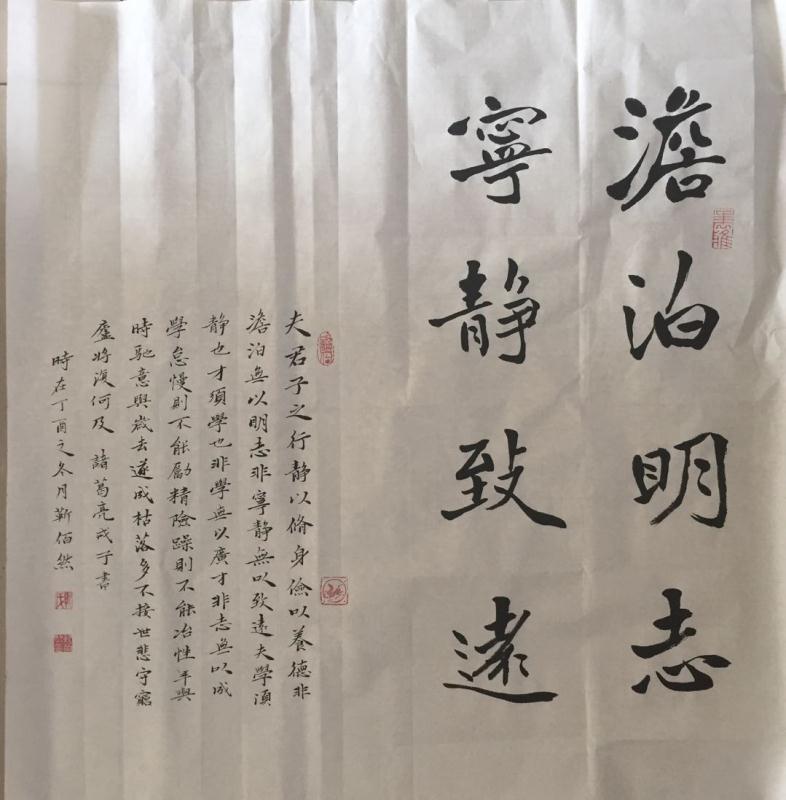 澹泊明志
寧靜致遠
夫君子之行靜以脩身儉以養德非
澹泊無以明志非寧靜無以致遠夫學須
靜也才須學也非學無以廣才非志無以成
學怠慢則不能勵精險躁則不能冶性年與
時馳意與歲去遂成枯落多不接世悲守窮
廬將復何及 諸葛亮戒子書
時在丁酉之冬月靳佰然